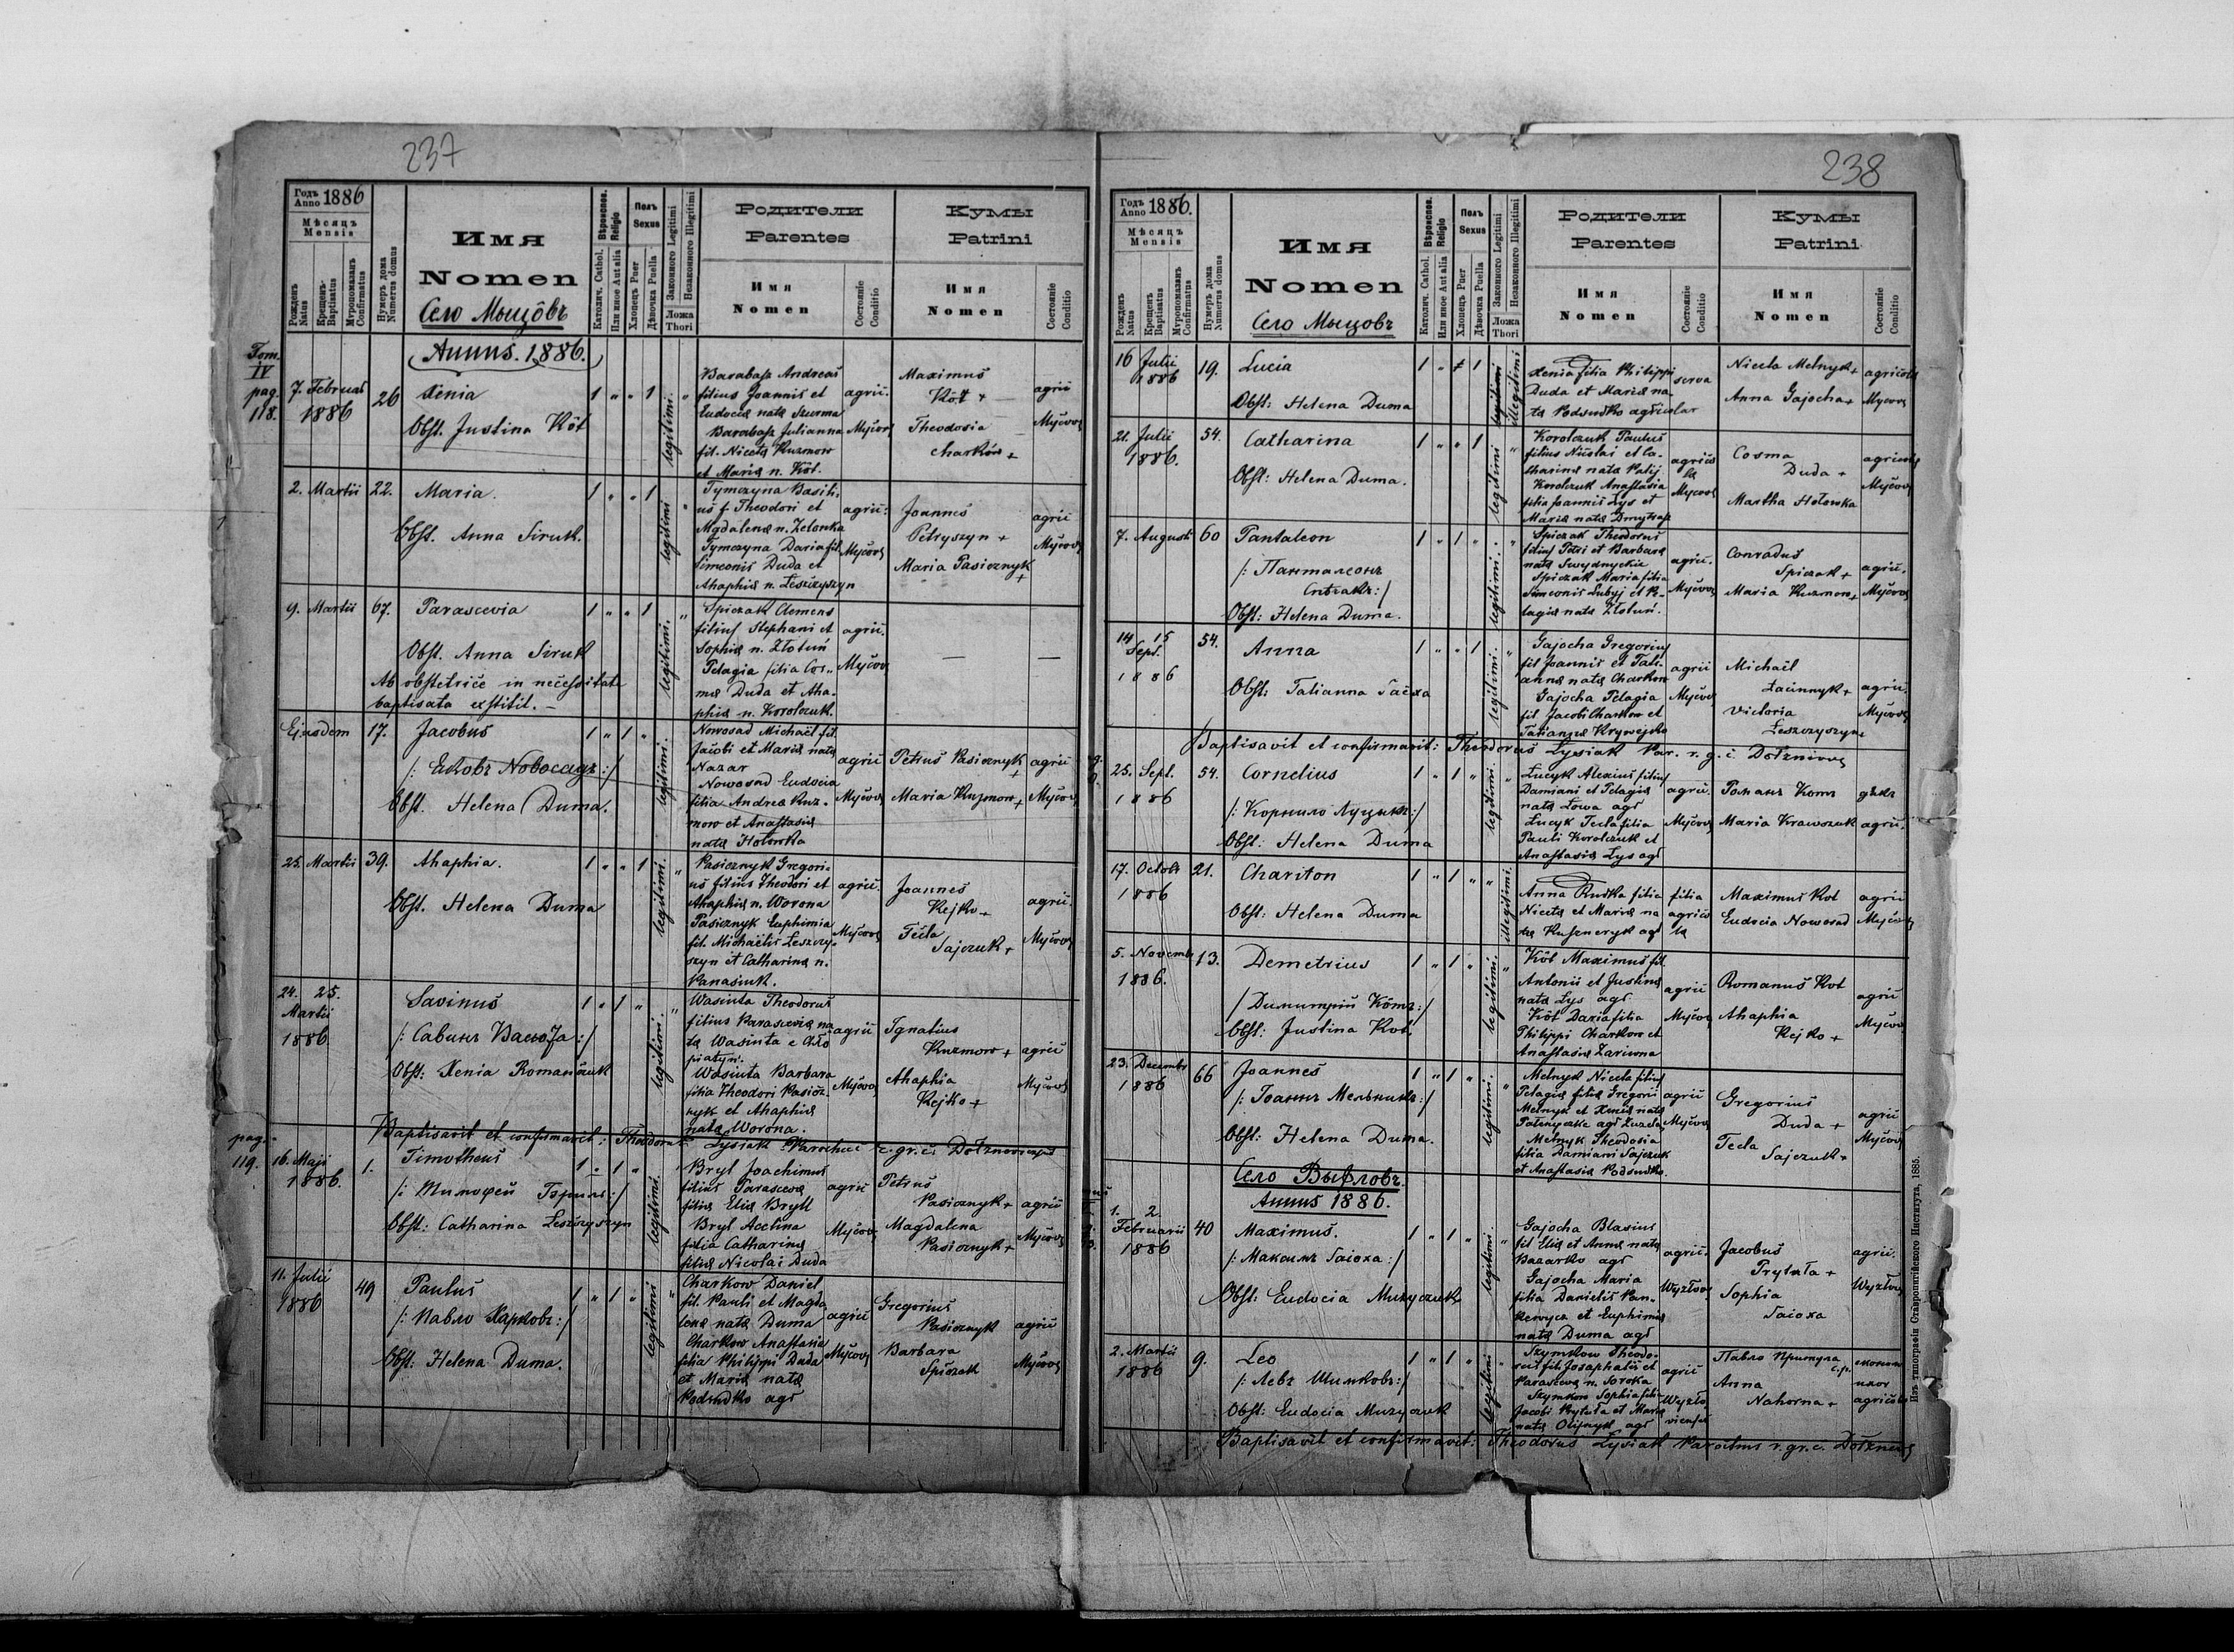 237
Годъ Anno 1886
Мѣсяцъ
Mensis
Рожденъ Natus
Крещенъ Baptisatus
Мѵропомазанъ Confirmatus
Нумеръ дома Numerus domus
Имя
Nomen
Село Мыцôвъ
Вѣроиспов. Religio
Католич. Cathol.
Или иное Aut alia
Полъ Sexus
Хлопецъ Puer
Дѣвочка Puella
Законного Legitimi
Незаконного Illegitimi
Ложа Thori
Родители
Parentes
Имя
Nomen
Состояніе Conditio
Кумы
Patrini
Имя
Nomen
Состояніе Conditio
Annus. 1886.
Tom. IV pag. 118.
7. Februar 1886
26
Xenia
Obst. Justina Kôt
1 „ „ 1
legitimi.
Barabasz Andreas
filius Joannis et
Eudocia nata Szurma
Barabasz Julianna
fil. Niceta Kuzmow
et Maria n. Kôt.
agric.
Myčov
Maximus
Kôt +
Theodosia
Charków +
agric
Myčov
2. Martii
22.
Maria.
Obst. Anna Siruk.
1 „ „ 1
legitimi
Tymczyna Basili-
us f. Theodori et
Magdalena n. Zelonka
Tymczyna Daria fil.
Simeonis Duda et
Ahaphia n. Leszczyszyn
agric:
Myčov
Joannes
Petryszyn +
Maria Pasicznyk +
agric
Myčov
9. Martii
67.
Parascevia
Obst. Anna Siruk
Ab obstetrice in necessitate
baptisata exstitit. –
1 „ „ 1
legitimi.
Spiczak Clemens
filius Stephani et
Sophia n. Złotuń
Pelagia filia Cos-
ma Duda et Aha-
phia n. Korolczuk.
agric.
Myčov
—
—
Ejusdem
17.
Jacobus
/: Еаковъ Новосадъ :/
Obst. Helena Duma.
1 „ 1 „
legitimi.
Nowosad Michaël fil.
Jacobi et Maria nata
Nazar
Nowosad Eudocia
filia Andrea Kuz-
mow et Anastasia
nata Hołowka
agric
Myčov
Petrus Pasicznyk +
Maria Kuzmow +
agric
Myčov
25. Martii
39.
Ahaphia.
Obst. Helena Duma
1 „ „ 1
legitimi.
Pasicznyk Gregori-
us filius Theodori et
Ahaphia n. Worona
Pasicznyk Euphimia
fil. Michaëlis Leszczy-
szyn et Catharina n.
Panasiuk.
agric.
Myčov
Joannes
Kejko +
Tecla
Sajczuk +
agric.
Myčov
24. 25. Martii 1886
Savinus
/: Савинъ Васюта :/
Obst: Xenia Romańczuk
1 „ 1 „
legitimi.
Wasiuta Theodorus
filius Parascevia na-
ta Wasiuta e Chło
piatyn.
Wasiuta Barbara
filia Theodori Pasicz-
nyk et Ahaphia
nata Worona.
agric
Myčov
Ignatius
Kuzmow +
Ahaphia
Kejko +
agric
Myčov
Baptisavit et confirmavit: Theodorus Lysiak Parochus r. gr. c.
pag. 119.
16. Maji 1886.
1.
Timotheus
/: Тимофей Брыль :/
Obst: Catharina Leszczyszyn
1 „ 1 „
legitimi.
Bryl Joachimus
filius Parasceva
filia Elia Bryll
Bryl Acelina
filia Catharina
filia Nicolai Duda
agric
Myčov
Petrus
Pasicznyk +
Magdalena
Pasicznyk +
agric
Myčov
11. Julii 1886
49
Paulus
/: Павло Харковъ :/
Obst: Helena Duma.
1 „ 1 „
legitimi
Charkow Daniel
fil. Pauli et Magda
lena nata Duma
Charkow Anastasia
filia Philippi Duda
et Maria nata
Podsudko agr
agric
Myčov
Gregorius
Pasicznyk
Barbara
Spiczak
agric
Myčov
238
Годъ Anno 1886.
Мѣсяцъ
Mensis
Рожденъ Natus
Крещенъ Baptisatus
Мѵропомазанъ Confirmatus
Нумеръ дома Numerus domus
Имя
Nomen
Село Мыцовъ
Вѣроиспов. Religio
Католич. Cathol.
Или иное Aut alia
Полъ Sexus
Хлопецъ Puer
Дѣвочка Puella
Законного Legitimi
Незаконного Illegitimi
Ложа Thori
Родители
Parentes
Имя
Nomen
Состояніе Conditio
Кумы
Patrini
Имя
Nomen
Состояніе Conditio
16 Julii 1886
19.
Lucia
Obst: Helena Duma
illegitimi
Xenia filia Philippi
Duda et Maria na-
ta Podsudko agricolar
serva
Niceta Melnyk +
Anna Gajocha +
agricola
Mycov
21. Julii 1886.
54.
Catharina
Obst: Helena Duma.
1 „ „ 1
legitimi
Korolczuk Paulus
filius Nicolai et Ca-
tharina nata Palij
Korolczuk Anastasia
filia Joannis Lys et
Maria nata Dmytrasz
agrico
la
Mycov
Cosma
Duda +
Martha Hołowka
agricola
Myčov
7. Augusti
60
Pantaleon
/: Панталеонъ
Спѣчакъ :/
Obst: Helena Duma.
1 „ 1 „
legitimi.
Spiczak Theodorus
filius Petri et Barbara
nata Swydnyckie
Spiczak Maria filia
Simeonis Lubyj et Pe-
lagia nata Złotuń.
agric.
Myčov
Conradus
Spiczak +
Maria Kuzmow +
agric.
Myčov
14 15 Sept. 1886
54.
Anna
Obst: Tatianna Гаёха
1 „ „ 1
legitimi.
Gajocha Gregorius
fil Joannis et Tati-
anna nata Charkow
Gajocha Pelagia
fil Jacobi Charkow et
Tatianna Krywejko
agric
Myčov
Michaël
Łacinnyk +
Victoria
Leszczyszyn
agric.
Myčov
Baptisavit et confirmavit: Theodorus Lysiak Par. r. g. c. Dołznicov
25. Sept. 1886
54.
Cornelius
/: Корнило Луцыкъ :/
Obst: Helena Duma
1 „ 1 „
legitimi.
Łucyk Alexius filius
Damiani et Pelagia
nata Łowa agr
Łucyk Tecla filia
Pauli Korolczuk et
Anastasia Lys agr
agric.
Myčov
Романъ Котъ
Maria Krawczuk
дякъ
agric.
17. Octobr 1886
21.
Chariton
Obst: Helena Duma
1 „ 1 „ „
illegitimi.
Anna Rudka filia
Niceta et Maria na
ta Kuszneryk agr
filia
agrico
la
Maximus Kot
Eudocia Nowosad
agric
Myčov
5. Novembr 1886.
13.
Demetrius
/: Димитрій Кôтъ :/
Obst: Justina Kot
1 „ 1 „
legitimi.
Kôt Maximus fil.
Antonii et Justina
nata Lys agr.
Kôt Daria filia
Philippi Charkow et
Anastasia Zariwna
agric
Myčov
Romanus Kot
Ahaphia
Kejko +
agric
Myčov
23. Decembr 1886
66
Joannes
/: Іоаннъ Мельникъ :/
Obst: Helena Duma.
1 „ 1 „
legitimi.
Melnyk Niceta filius
Pelagia filia Gregorii
Melnyk et Xenia nata
Melnyk Theodosia
filia Damiani Sajczuk
et Anastasia Podsudko
agric
Myčov
Gregorius
Duda +
Tecla
Sajczuk +
agric
Myčov
Село Выжловъ.
Annus 1886.
1. 2. Februarii 1886
40
Maximus.
/: Максимъ Гаіоха :/
Obst: Eudocia Muzyczuk
1 „ 1 „
legitimi.
Gajocha Blasius
fil Elia et Anna nata
Bazarko agr
Gajocha Maria
filia Danielis Pan-
kewycz et Euphimia
nata Duma agr
agric.
Wyzłov
Jacobus
Prytuła +
Sophia
Гаіоха
agric.
Wyzłov
2. Martii 1886
9.
Leo
/: Левъ Шимковъ :/
Obst: Eudocia Muzyczuk
1 „ 1 „
legitimi
Szymkow Theodo-
rus fil. Josaphatii et
Parasceva n. Soroka
Szymkow Sophia filia
Jacobi Prytuła et Maria
nata Olijnyk agr
agric
Wyzło
viensis
Павло Притула
Anna
Nahorna +
agricola
Baptisavit et confirmavit: Theodorus Lysiak Parochus r. gr. c. Dołznicov
Изъ типографіи Ставропигійского Института, 1885.